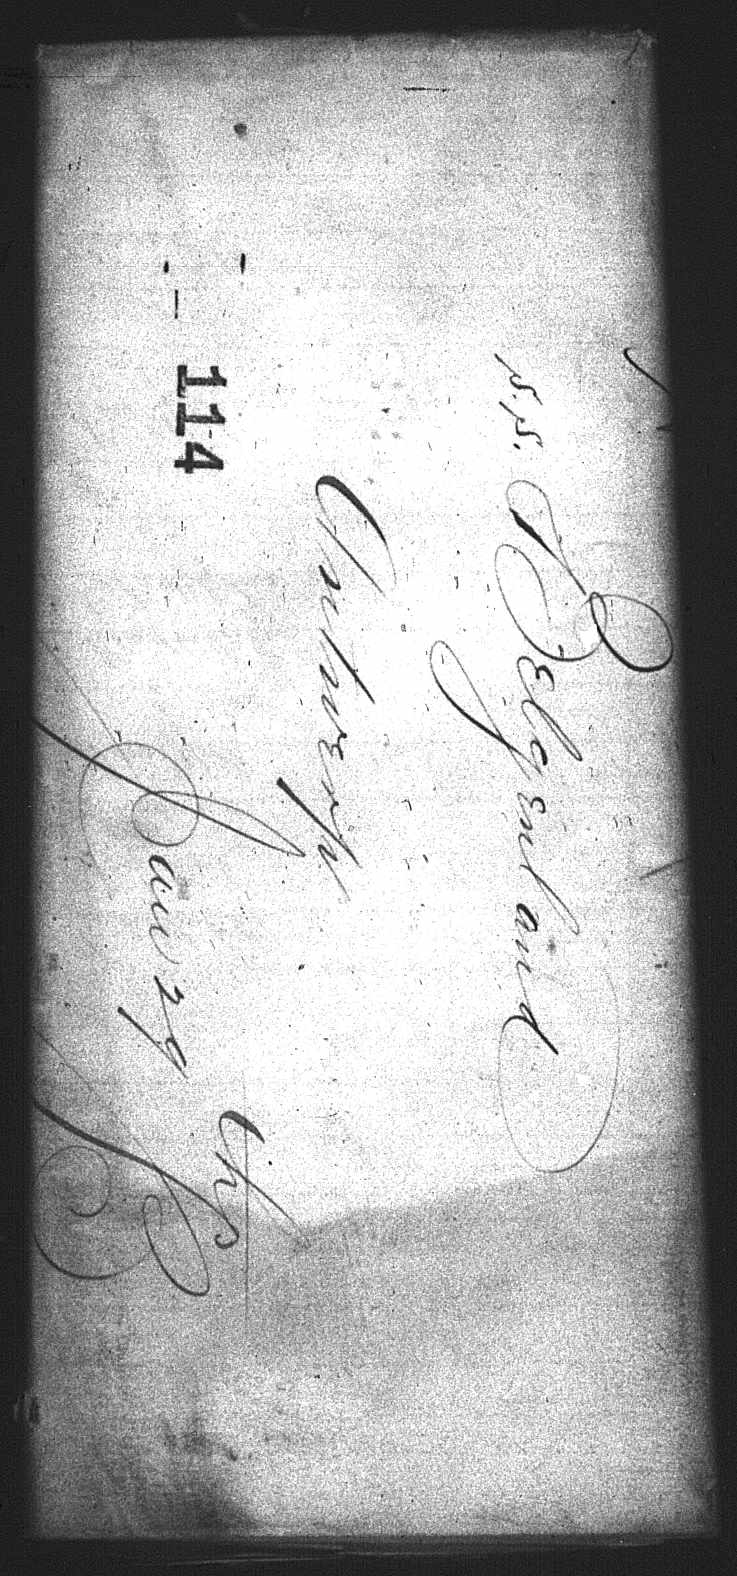 S.S. Belgenland
Antwerp
114
Jany 29